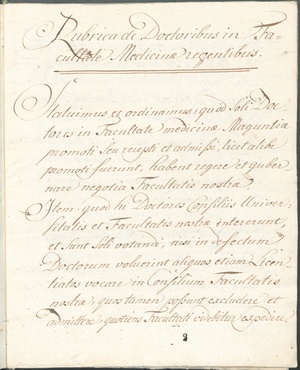 Rubrica de Doctoribus in Fa-
cultate Medicinæ regentibus.
Statuimus et ordinamus, quod soli Doc-
tores in Facultate medicinæ Maguntiæ
promoti seu recepti et admissi, licet alibi
promoti fuerint, habent regere et guber-
nare negotia Facultatis nostræ.
Item quod hi Doctores Consiliis Univer-
sitatis et Facultatis nostræ intererunt,
et sunt soli votandi, nisi in defectum
Doctorum voluerint aliquos etiam Licen-
tiatos vocare in Consilium Facultatis
nostræ, quos tamen possunt excludere et
admittere, quotiens Facultati videbitur expedire.
2